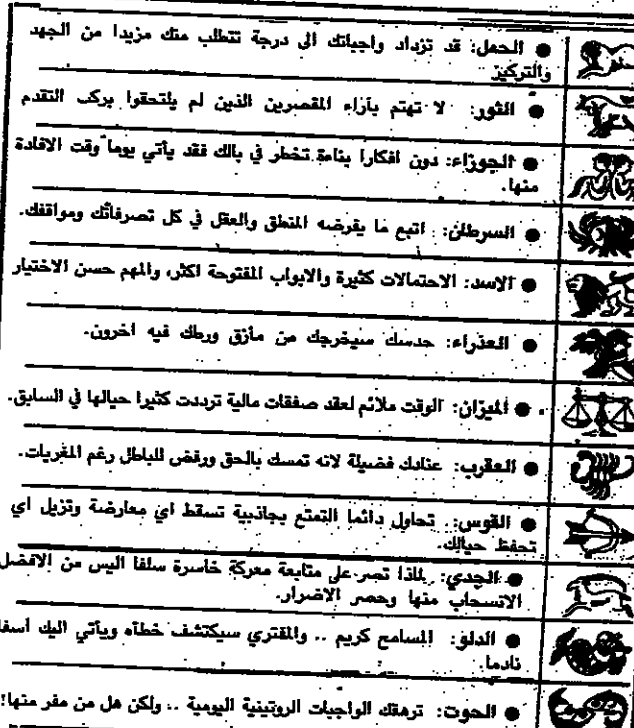 ● الحمل: قد تزداد واجباتك الى درجة تتطلب منك مزيدا من الجهد
والتركيز
● الثور: لا تهتم بآراء المقصرين الذين لم يلتحقوا بركب التقدم
● الجوزاء: دون افكارا بناءة تخطر في بالك فقد يأتي يوما وقت الافادة
منها.
● السرطان: اتبع ما يفرضه المنطق والعقل في كل تصرفاتك ومواقفك.
● الاسد: الاحتمالات كثيرة والابواب المفتوحة اكثر، والمهم حسن الاختيار
● العذراء: حدسك سيخرجك من مأزق ورطك فيه آخرون.
● الميزان: الوقت ملائم لعقد صفقات مالية ترددت كثيرا حيالها في السابق.
● العقرب: عنادك فضيلة لانه تمسك بالحق ورفض للباطل رغم المغريات.
● القوس: تحاول دائما التمتع بجاذبية تسقط اي معارضة وتزيل اي
تحفظ حيالك.
● الجدي: لماذا تصر على متابعة معركة خاسرة سلفا اليس من الافضل
الانسحاب منها وحصر الاضرار.
● الدلو: المسامح كريم .. والمفتري سيكتشف خطأه ويأتي اليك اسفا
نادما.
● الحوت: ترهقك الواجبات الروتينية اليومية .. ولكن هل من مفر منها؟